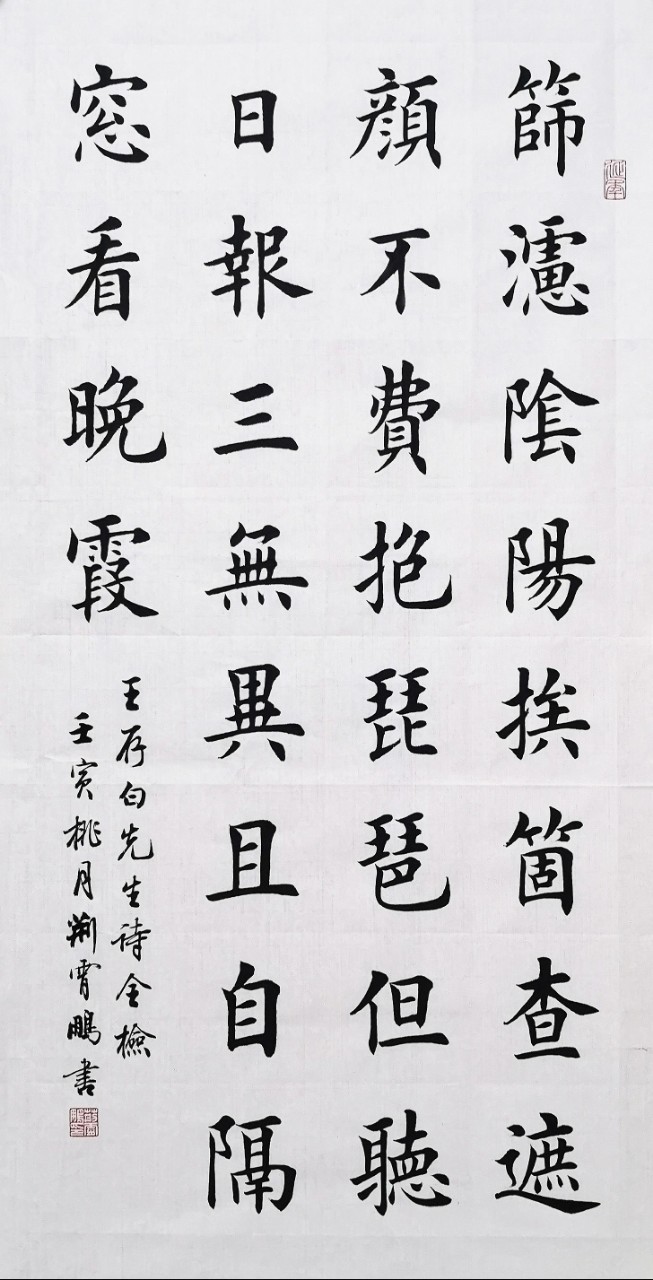 篩濾陰陽挨箇查遮
顔不費抱琵琶但聽
日報三無異且自隔
窓看晚霞
王存白先生诗全檢
壬寅桃月荆霄鹏書